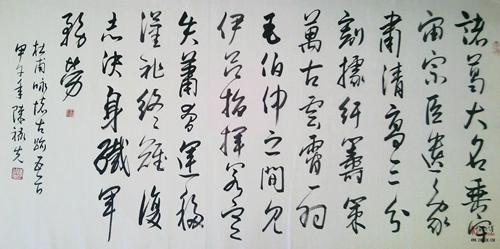 諸葛大名垂宇
宙宗臣遺像
肅清高三分
割據紆籌策
萬古雲霄一羽
毛伯仲之間見
伊呂指揮若定
失蕭曹運移
漢祚終難復
志決身殲軍
務勞
杜甫詠懷古跡五首
甲午年陳